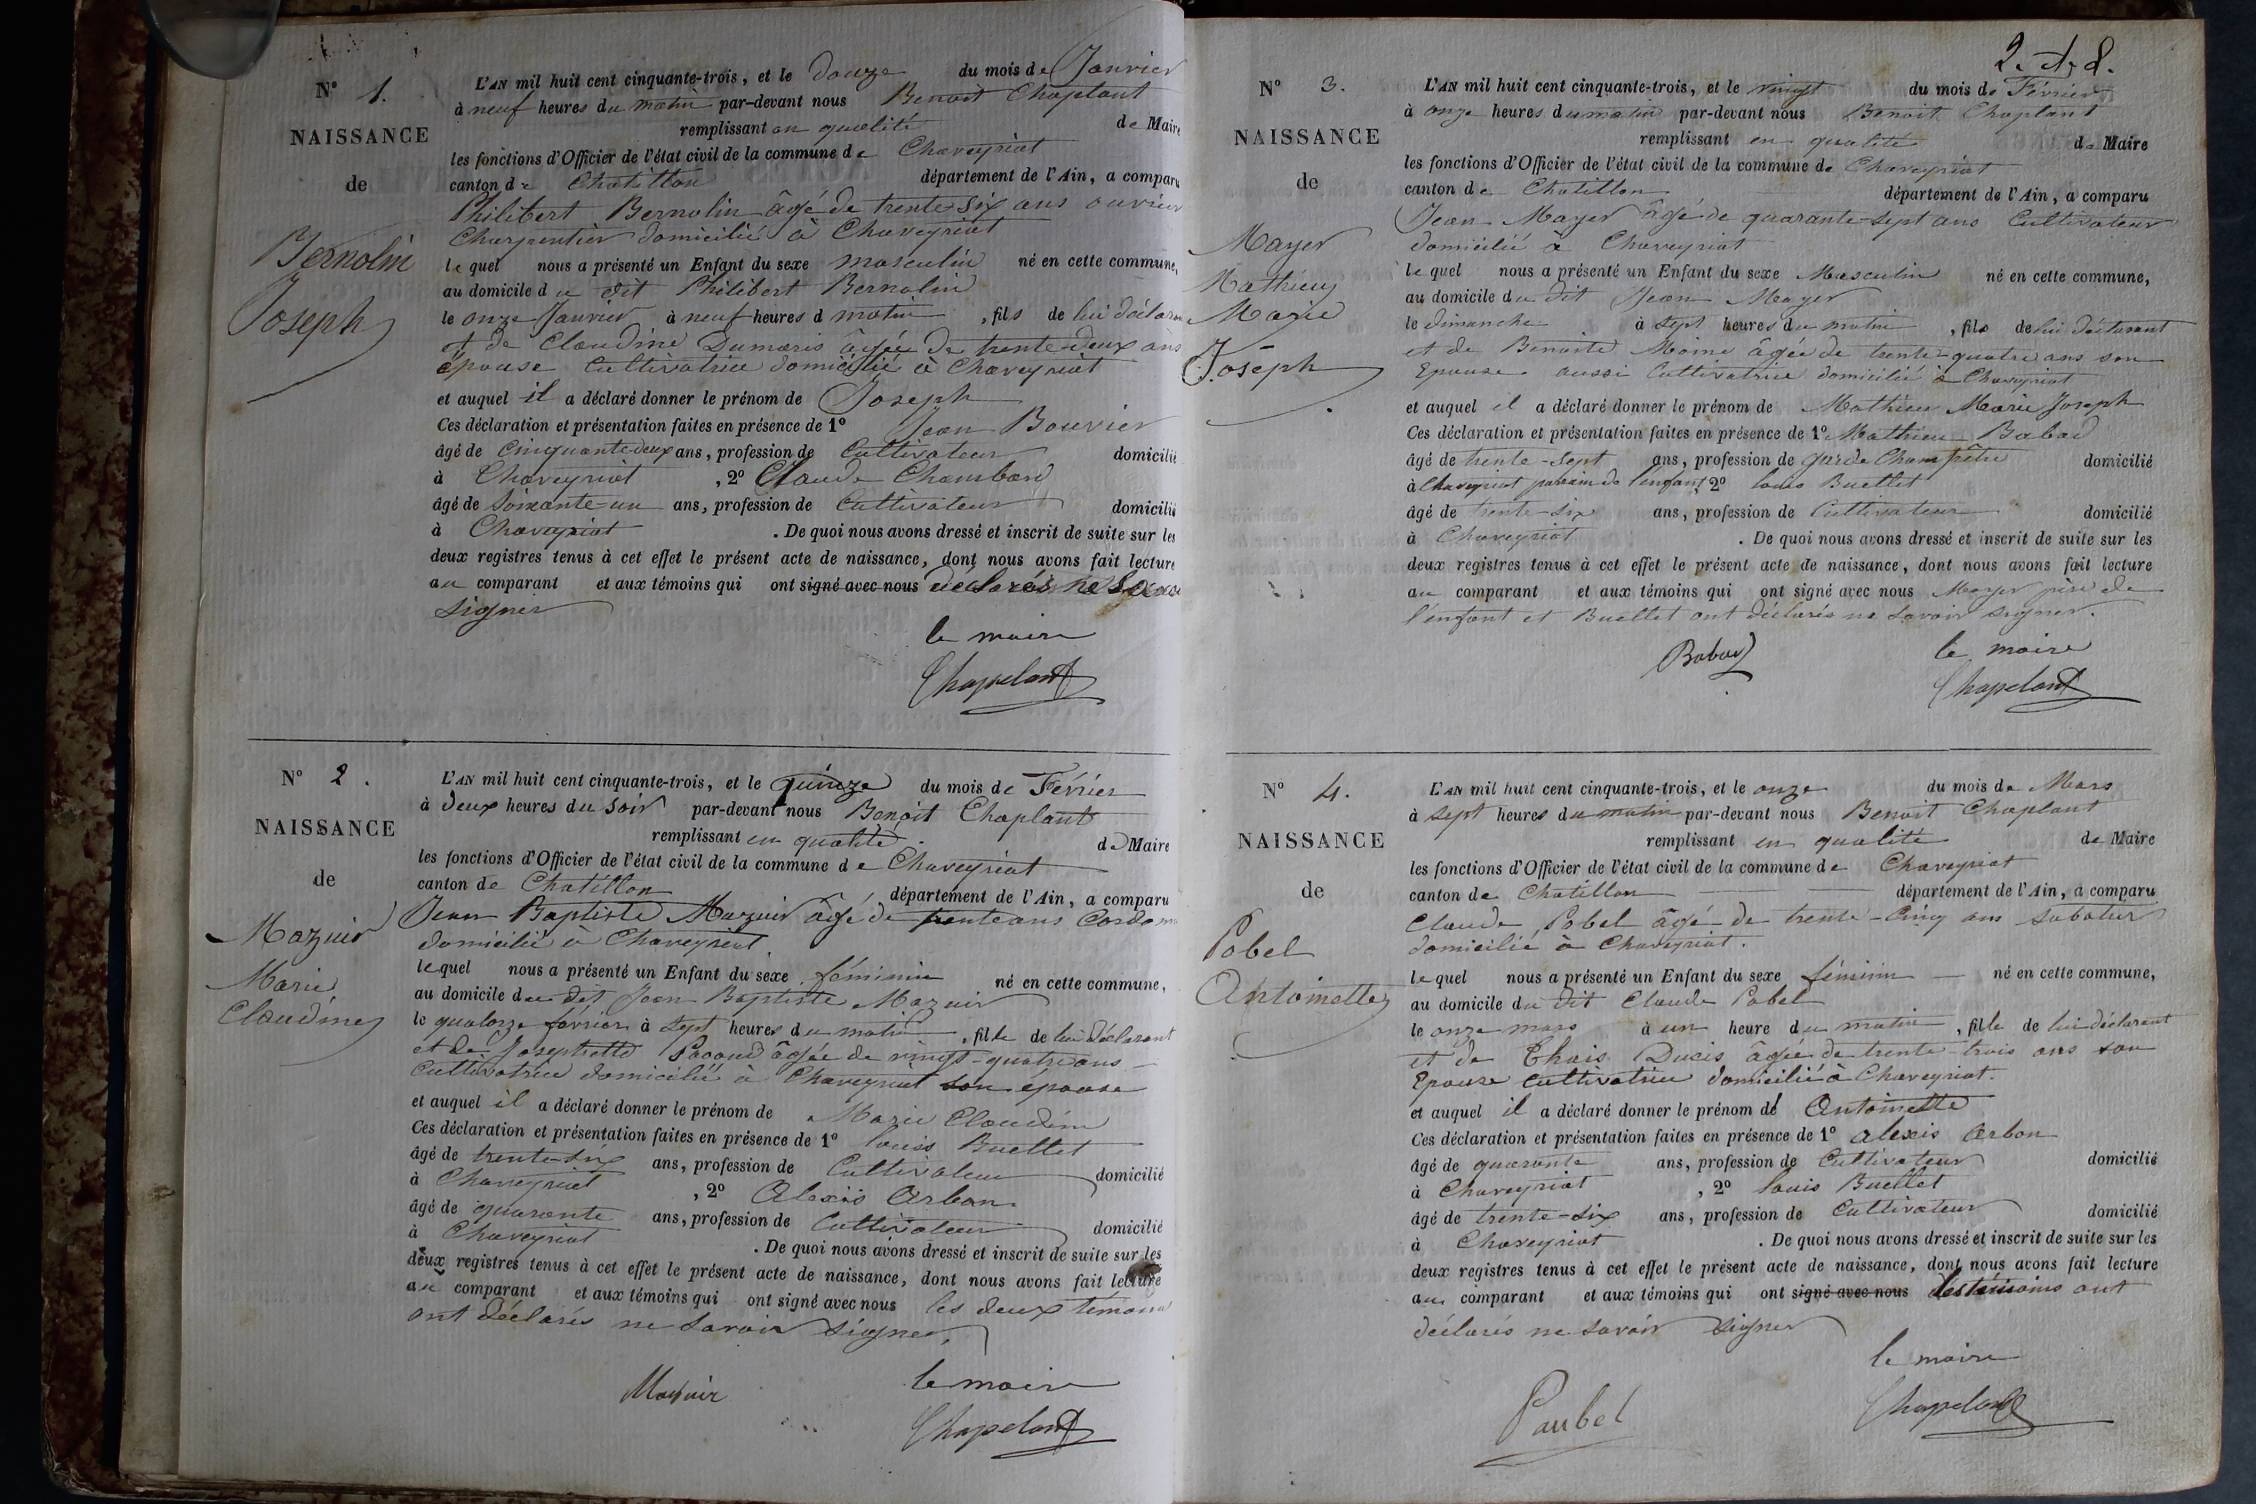 N° 1.
NAISSANCE
de
Bernolin
Joseph
L'AN mil huit cent cinquante-trois, et le douze du mois de Janvier
à neuf heures du matin par-devant nous Benoit Chaplant
remplissant en qualité de Maire
les fonctions d'Officier de l'état civil de la commune de Chaveyriat
canton de Chatillon département de l'Ain, a comparu
Philibert Bernolin âgé de trente six ans ouvrier
Charpentier domicilié à Chaveyriat
lequel nous a présenté un Enfant du sexe masculin né en cette commune,
au domicile du dit Philibert Bernolin
le onze Janvier à neuf heures d matin, fils de lui déclarant
et de Claudine Dumaris âgée de trente deux ans
épouse Cultivatrice domicilié à Chaveyriat
et auquel il a déclaré donner le prénom de Joseph
Ces déclaration et présentation faites en présence de 1° Jean Bouvier
âgé de Cinquante deux ans, profession de Cultivateur domicilié
à Chaveyriat, 2° Claude Chambard
âgé de Soixante-un ans, profession de Cultivateur domicilié
à Chaveyriat. De quoi nous avons dressé et inscrit de suite sur les
deux registres tenus à cet effet le présent acte de naissance, dont nous avons fait lecture
au comparant et aux témoins qui ont signé avec nous déclarés ne Savoir
signer
le maire
Chapelant
N° 2.
NAISSANCE
de
Mazuir
Marie
Claudine
L'AN mil huit cent cinquante-trois, et le quinze du mois de Février
à deux heures du soir par-devant nous Benoit Chaplant
remplissant en qualité de Maire
les fonctions d'Officier de l'état civil de la commune de Chaveyriat
canton de Chatillon département de l'Ain, a comparu
Jean Baptiste Mazuir âgé de trente ans Cordo
domicilié à Chaveyriat
lequel nous a présenté un Enfant du sexe féminin né en cette commune,
au domicile du dit Jean Baptiste Mazuir
le quatorze février à sept heures du matin, fille de lui déclarant
et de Josephette Pacoud âgée de vingt-quatre ans
Cultivatrice domicilié à Chaveyriat son épouse
et auquel il a déclaré donner le prénom de Marie Claudine
Ces déclaration et présentation faites en présence de 1° louis Buellet
âgé de trente-six ans, profession de Cultivateur domicilié
à Chaveyriat, 2° Alexis Arban
âgé de quarante ans, profession de Cultivateur domicilié
à Chaveyriat. De quoi nous avons dressé et inscrit de suite sur les
deux registres tenus à cet effet le présent acte de naissance, dont nous avons fait lecture
au comparant et aux témoins qui ont signé avec nous les deux témoins
ont déclarés ne savoir signer,
Mazuir
le maire
Chapelant
N° 3.
NAISSANCE
de
Mayer
Mathieu
Marie
Joseph
L'AN mil huit cent cinquante-trois, et le vingt du mois de Février
à onze heures du matin par-devant nous Benoit Chaplant
remplissant en qualité de Maire
les fonctions d'Officier de l'état civil de la commune de Chaveyriat
canton de Chatillon département de l'Ain, a comparu
Jean Mayer âgé de quarante-sept ans Cultivateur
domicilié à Chaveyriat
lequel nous a présenté un Enfant du sexe Masculin né en cette commune,
au domicile du dit Jean Mayer
le dimanche à sept heures du matin, fils de lui déclarant
et de Benoite Moine âgée de trente-quatre ans son
Epouse aussi Cultivatrice domicilié à Chaveyriat
et auquel il a déclaré donner le prénom de Mathieu Marie Joseph
Ces déclaration et présentation faites en présence de 1° Mathieu Babad
âgé de trente-sept ans, profession de garde Champêtre domicilié
à Chaveyriat parrain de l'enfant, 2° louis Buellet
âgé de trente-six ans, profession de Cultivateur domicilié
à Chaveyriat. De quoi nous avons dressé et inscrit de suite sur les
deux registres tenus à cet effet le présent acte de naissance, dont nous avons fait lecture
au comparant et aux témoins qui ont signé avec nous Mayer père de
l'enfant et Buellet ont déclarés ne savoir signer.
Babad
le maire
Chapelant
N° 4.
NAISSANCE
de
Pobel
Antoinette
L'AN mil huit cent cinquante-trois, et le onze du mois de Mars
à sept heures du matin par-devant nous Benoit Chaplant
remplissant en qualité de Maire
les fonctions d'Officier de l'état civil de la commune de Chaveyriat
canton de Chatillon département de l'Ain, a comparu
Claude Pobel âgé de trente-cinq ans sabotier
domicilié à Chaveyriat.
lequel nous a présenté un Enfant du sexe féminin né en cette commune,
au domicile du dit Claude Pobel
le onze mars à un heure du matin, fille de lui déclarant
et de Thais Ducis âgée de trente-trois ans son
Epouse cultivatrice domicilié à Chaveyriat.
et auquel il a déclaré donner le prénom de Antoinette
Ces déclaration et présentation faites en présence de 1° alexis Arban
âgé de quarante ans, profession de Cultivateur domicilié
à Chaveyriat, 2° louis Buellet
âgé de trente-six ans, profession de Cultivateur domicilié
à Chaveyriat. De quoi nous avons dressé et inscrit de suite sur les
deux registres tenus à cet effet le présent acte de naissance, dont nous avons fait lecture
au comparant et aux témoins qui ont signé avec nous les témoins ont
déclarés ne savoir signer
le maire
Paubel
Chapelant